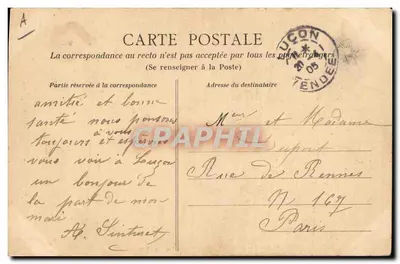 A
CARTE POSTALE
La correspondance au recto n'est pas acceptée par tous les pays étrangers
(Se renseigner à la Poste)
LUÇON
20
05
VENDEE
Partie réservée à la correspondance
Adresse du destinataire
amitié et bonne
santé nous pensons
à vous
toujours et
vous voir à Luçon
un bonjour de
la part de mon
mari
Mr et Madame
Dupont
Rue de Rennes
N 167
Paris
CARTE-POSTALE